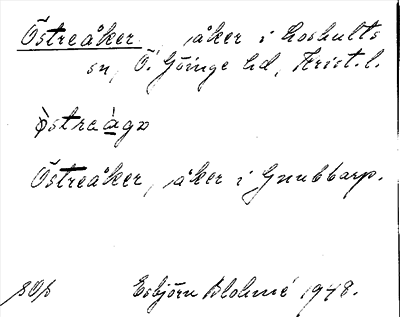 Östreåker, åker i Loshults
sn, Ö. Göinge hd, Krist. l.
ø̀streàgɒ
Östreåker, åker i Gnubbarp.
Esbjörn Blohmé 1948.